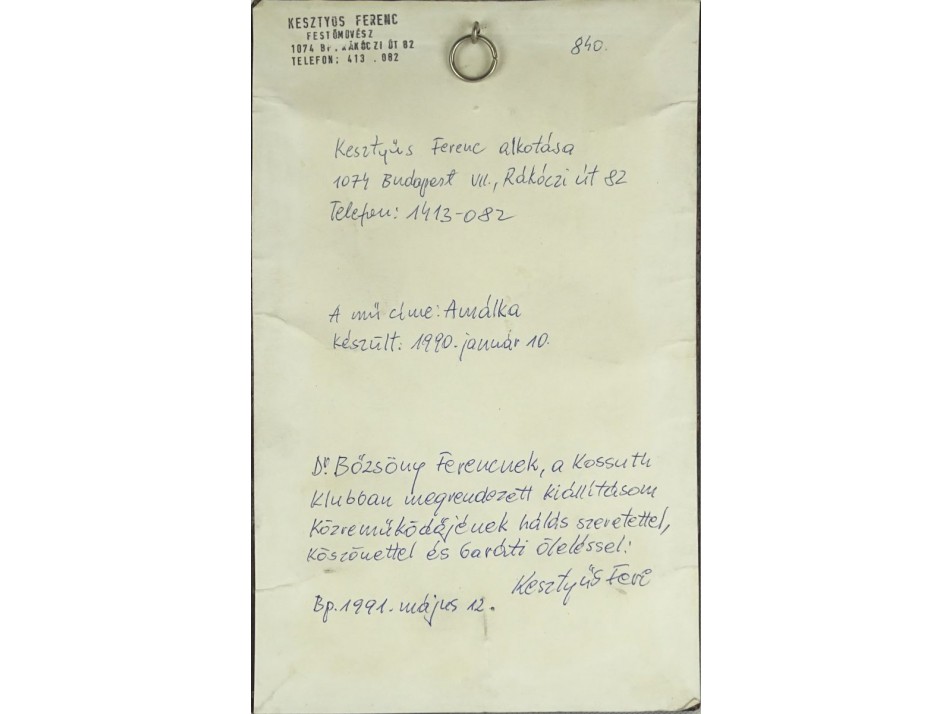 KESZTYÜS FERENC
FESTŐMŰVÉSZ
1074 BP. RÁKÓCZI ÚT 82
TELEFON: 413 . 082
840.
Kesztyűs Ferenc alkotása
1074 Budapest VII., Rákóczi út 82
Telefon: 1413-082
A mű címe: Amálka
Készült: 1990. január 10.
Dr. Bőzsöny Ferencnek, a Kossuth
Klubban megrendezett kiállításom
Közreműködőjének hálás szeretettel,
Köszönettel és baráti öleléssel:
Kesztyűs Feri
Bp. 1991. május 12.